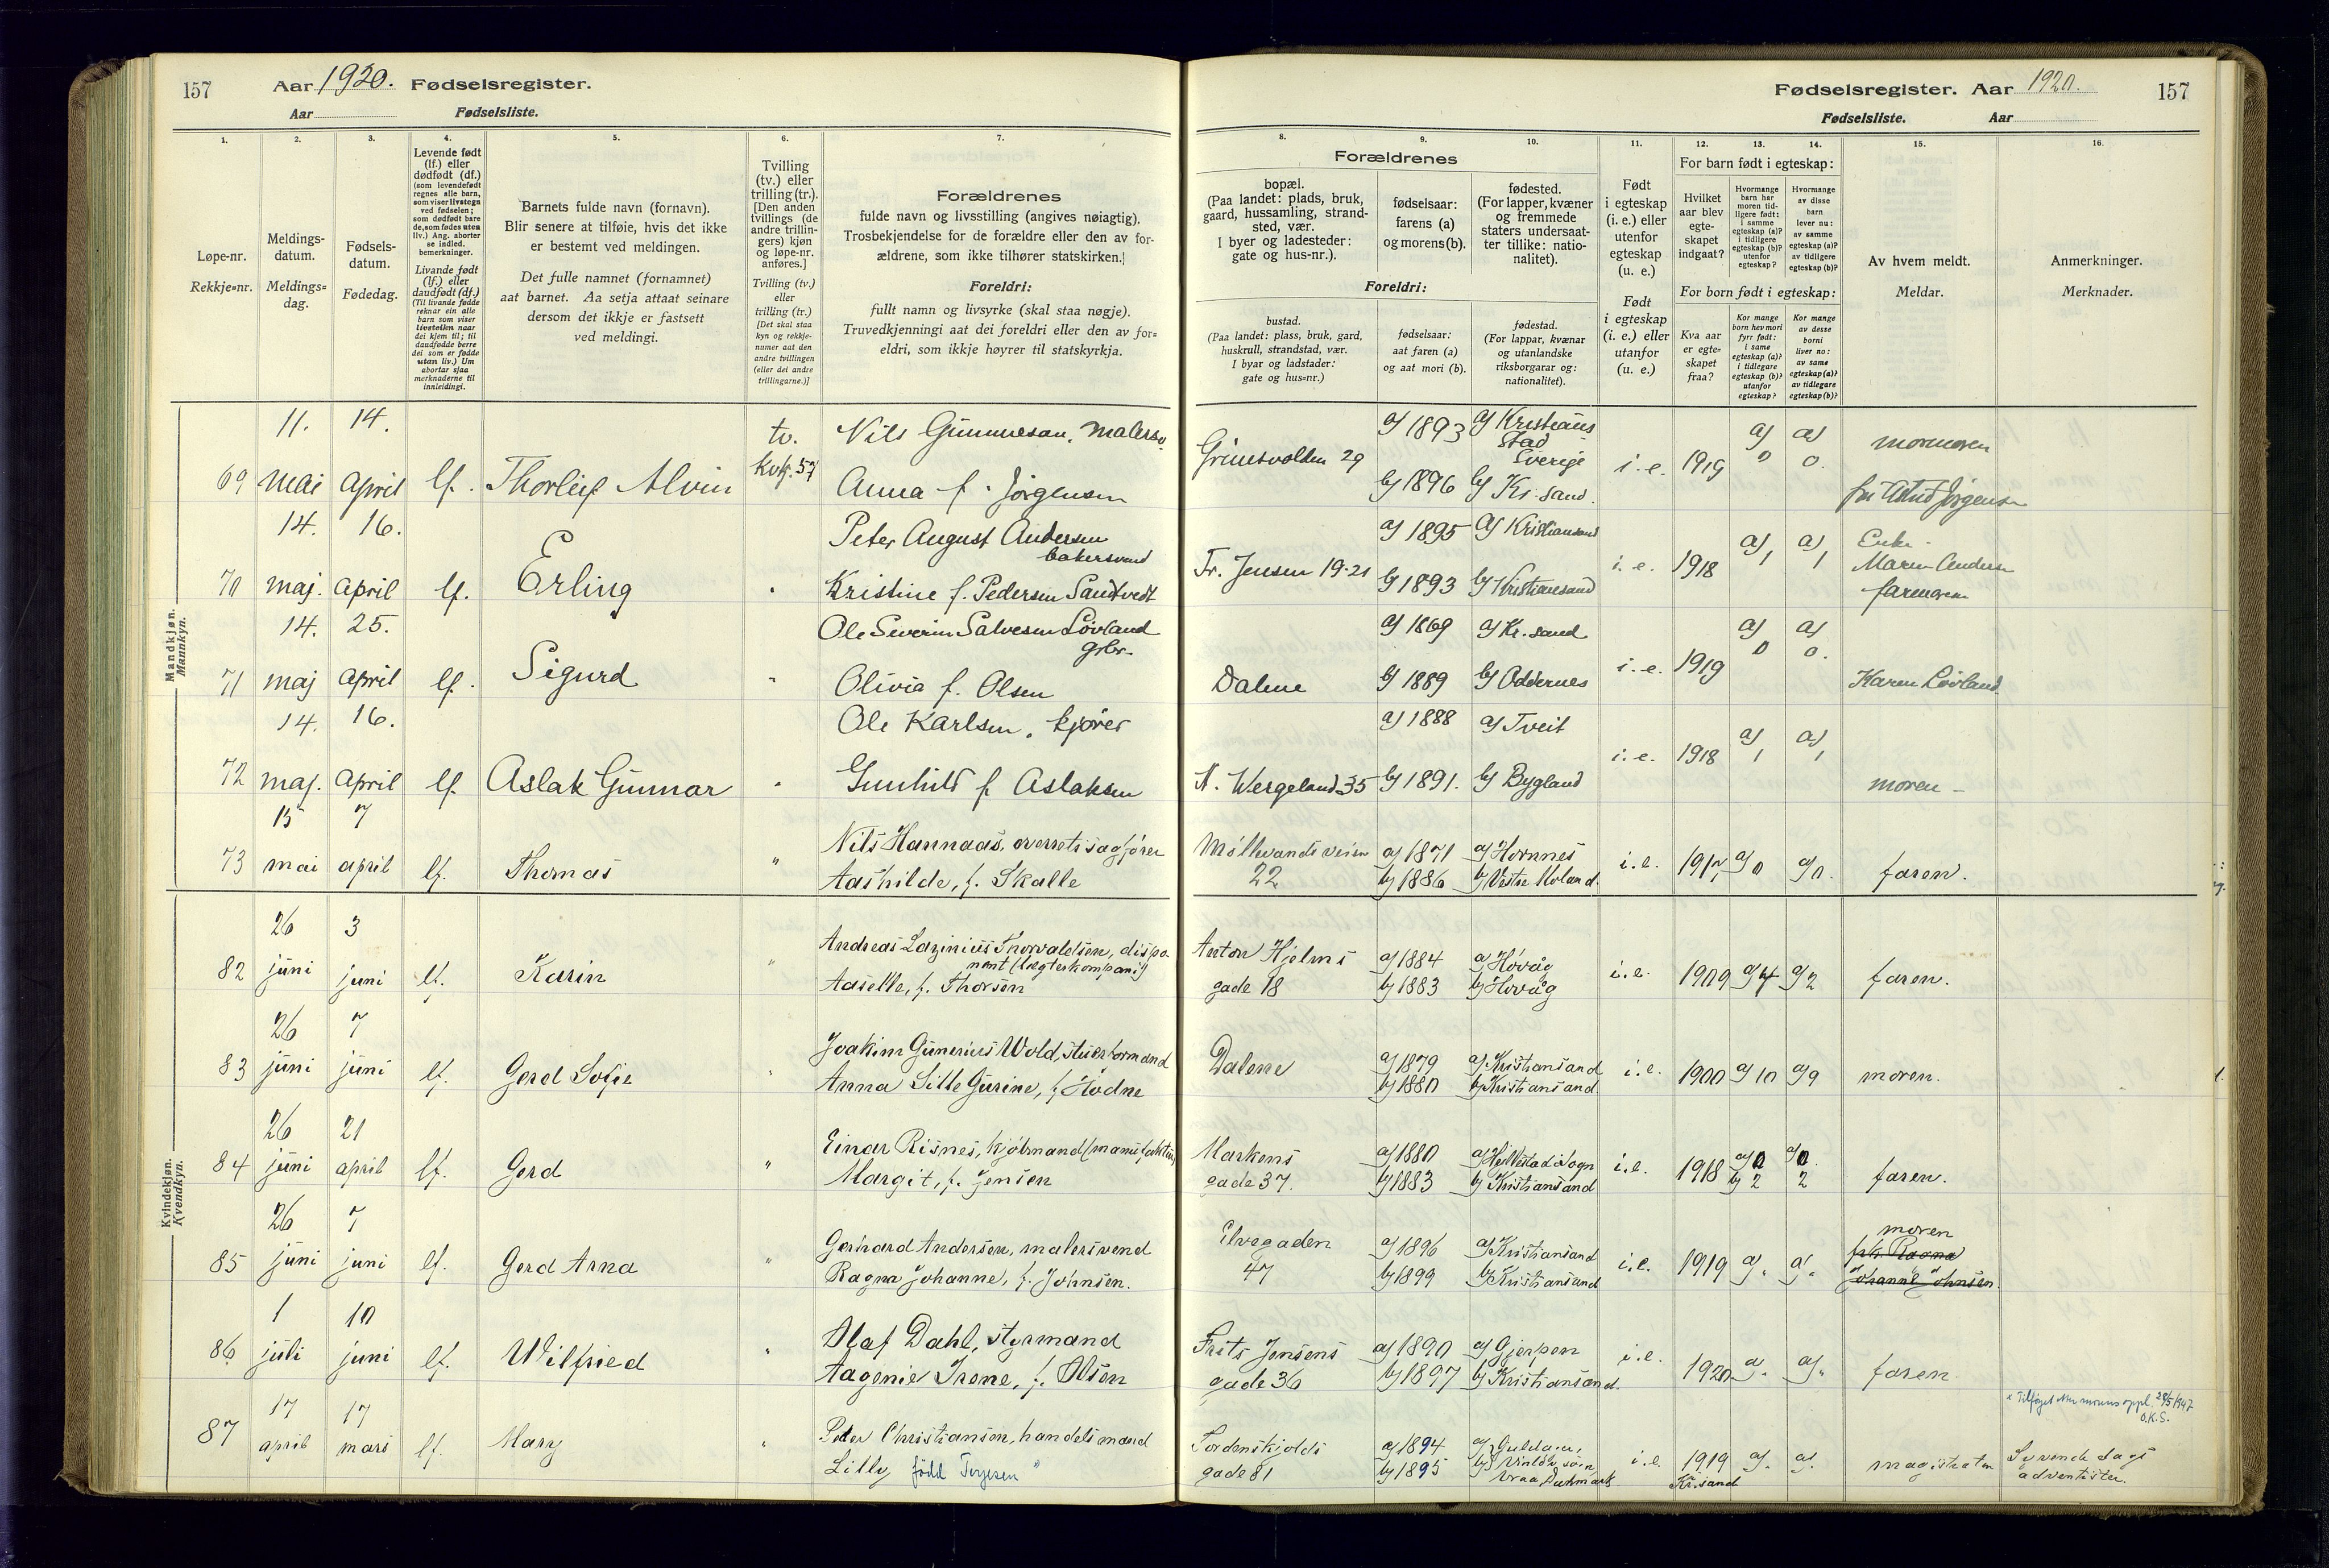 157
Aar 1920. Fødselsregister.
Aar
Fødselsliste.
Fødselsregister. Aar 1920.
157
Fødselsliste. Aar
1.
Løpe-nr.
Rekkje=nr.
2.
Meldings-
datum.
Meldings=
dag.
3.
Fødsels-
datum.
Fødedag.
4.
Levende født
(lf.) eller
dødfødt (df.)
(som levendefødt
regnes alle barn,
som viser livstegn
ved fødselen;
som dødfødt bare
de, som fødes uten
liv.) Ang. aborter
se indled.
bemerkninger.
Livande født
(lf.) eller
daudfødt (df.)
(Til livande fødde
reknar ein alle
barn som viser
livsteikn naar
dei kjem til; til
daudfødde berre
dei som er fødde
utan liv.) Um
abortar sjaa
merknaderne til
innleidingi.
5.
Barnets fulde navn (fornavn).
Blir senere at tilføie, hvis det ikke
er bestemt ved meldingen.
Det fulle namnet (fornamnet)
aat barnet. Aa setja attaat seinare
dersom det ikkje er fastsett
ved meldingi.
6.
Tvilling
(tv.) eller
trilling (tr.).
[Den anden
tvillings (de
andre trillin-
gers) kjøn
og løpe-nr.
anføres.]
Tvilling (tv.)
eller
trilling (tr.)
[Det skal staa
kyn og rekkje-
numer aat den
andre tvillingen
(eller dei andre
trillingarne.)]
7.
Forældrenes
fulde navn og livsstilling (angives nøiagtig).
Trosbekjendelse for de forældre eller den av for-
ældrene, som ikke tilhører statskirken.]
Foreldri:
fullt namn og livsyrke (skal staa nøgje).
Truvedkjenningi aat dei foreldri eller den av for=
eldri, som ikkje høyrer til statskyrkja.
Forældrenes
8.
bopæl.
(Paa landet: plads, bruk,
gaard, hussamling, strand-
sted, vær.
I byer og ladesteder:
gate og hus-nr.).
9.
fødselsaar:
farens (a)
og morens (b).
10.
fødested.
(For lapper, kvæner
og fremmede
staters undersaat-
ter tillike: natio-
nalitet).
Foreldri:
bustad.
(Paa landet: plass, bruk, gard,
huskrull, strandstad, vær.
I byar og ladstader:
gate og hus=nr.)
fødselsaar:
aat faren (a)
og aat mori (b).
fødestad.
(For lappar, kvænar
og utanlandske
riksborgarar og:
nationalitet).
11.
Født
i egteskap
(i. e.) eller
utenfor
egteskap
(u. e.)
Født
i egteskap
(i. e.) eller
utanfor
(u. e.)
For barn født i egteskap:
12.
Hvilket
aar blev
egte-
skapet
indgaat?
13.
Hvormange
barn har
moren tid-
ligere født:
i samme
egteskap (a)?
i tidligere
egteskap (b)?
utenfor
egteskap?
14.
Hvormange
av disse
barn
lever nu:
av samme
egteskap (a)?
av tidligere
egteskap (b)?
For born født i egteskap:
Kva aar
er egte-
skapet
fraa?
Kor mange
born hev mori
fyrr født:
i same
egteskap (a)?
i tidlegare
egteskap (b)?
utanfor
egteskap?
Kor mange
av desse
borni
liver no:
av same
egteskap (a)?
av tidlegare
egteskap (b)?
15.
Av hvem meldt.
Meldar.
16.
Anmerkninger.
Merknader.
Mandkjøn.
Mannkyn.
69 11. mai 14. april lf. Thorleif Alvin tv. kvk. 57 Nils Gunnuesan, malersv.
Anna f. Jørgensen
Grimsvolden 29 a) 1893 a) Kristians
stad
Sverige
b) 1896 b) Kr. sand. i. e. 1919 a) 0 a) 0. mormoren
fru Astrid Jørgensen
70 14. maj. 16. april lf. Erling " Peter August Andersen
bakersvend
Kristine f. Pedersen Sandtvedt
Fr. Jensen 19-21 a) 1895 a) Kristiansand
b) 1893 b) Kristiansand i. e. 1918 a) 1 a) 1 Enke
Maren Andersen
farmoren
71 14. maj 25. april lf. Sigurd " Ole Severin Salvesen Løvland
grbr.
Olivia f. Olsen
Dalene a) 1869 a) Kr. sand
b) 1889 b) Oddernes i. e. 1919 a) 0 a) 0. Karen Løvland
72 14. maj. 16. april lf. Aslak Gunnar " Ole Karlsen, kjører
Gunhild f. Aslaksen
H. Wergeland 35 a) 1888 a) Tveit
b) 1891. b) Bygland i. e. 1918 a) 1 a) 1 moren
73 15 mai 7 april lf. Thomas " Nils Hannaas, overretssagfører
Aashilde, f. Skalle
Møllevandsveien
22 a) 1871 a) Hornnes
b) 1886 b) Vestre Moland. i. e. 1917 a) 0 a) 0. faren.
Kvindekjøn.
Kvendkyn.
82 26 juni 3 juni lf. Karin " Andreas Lazinius Thorvaldsen, dispo-
nent (Vegterkompani)
Aaselle, f. Thorsen
Anton Hjelms
gade 18 a) 1884 a) Høvåg
b) 1883 b) Høvåg i. e. 1909 a) 4 a) 2 faren.
83 26 juni 7 juni lf. Gerd Sofie " Joakim Gunerius Wold, stuerformand
Anna Sille Gurine, f. Hodne
Dalene a) 1879 a) Kristiansand
b) 1880 b) Kristiansand. i. e. 1900 a) 10 a) 9 moren.
84 26 juni 21 april lf. Gerd " Einar Risnes, kjøbmand (manufaktur)
Margit, f. Jensen
Markens
gade 37. a) 1880 a) i Sogn
b) 1883 b) Kristiansand i. e. 1918 a) 0 b) 2 a) 0. 2 faren.
85 26 juni 7 juni lf. Gerd Arna " Gerhard Andersen, malersvend
Ragna Johanne, f. Johnsen.
Elvegaden
47 a) 1896 a) Kristiansand
b) 1899 b) Kristiansand i. e. 1919 a) " a) " moren
frk. Ragna
Johanne Johnsen.
86. 1 juli 10 juni lf. Wilfried " Olaf Dahl, styrmand
Aagenie Irene, f. Olsen
Frits Jensens
gade 36 a) 1890 a) Gjerpen
b) 1897 b) Kristiansand. i. e. 1920 a) " a) " faren
87 17 april 17 mars lf. Mary " Peter Christiansen, handelsmand
Lilly født Terjesen "
Tordenskjolds
gade 81 a) 1894
b) 1895 Danmark i. e. 1919
Kr. sand a) " a) " magistraten
× Tilføiet efter morens oppl. 28/5 1947
O.K.S.
Syvende dags
adventister.